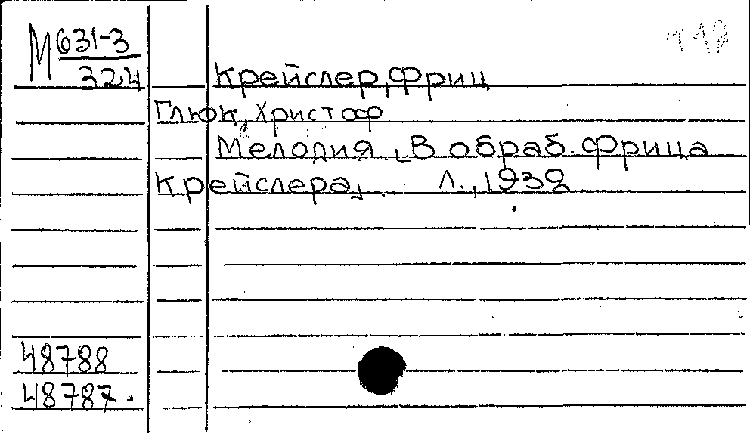 М 631-3
324
Крейслер, Фриц
Глюк, Христоф
Мелодия, [В обраб. Фрица
Крейслера]. Л., 1932
48788
48787.